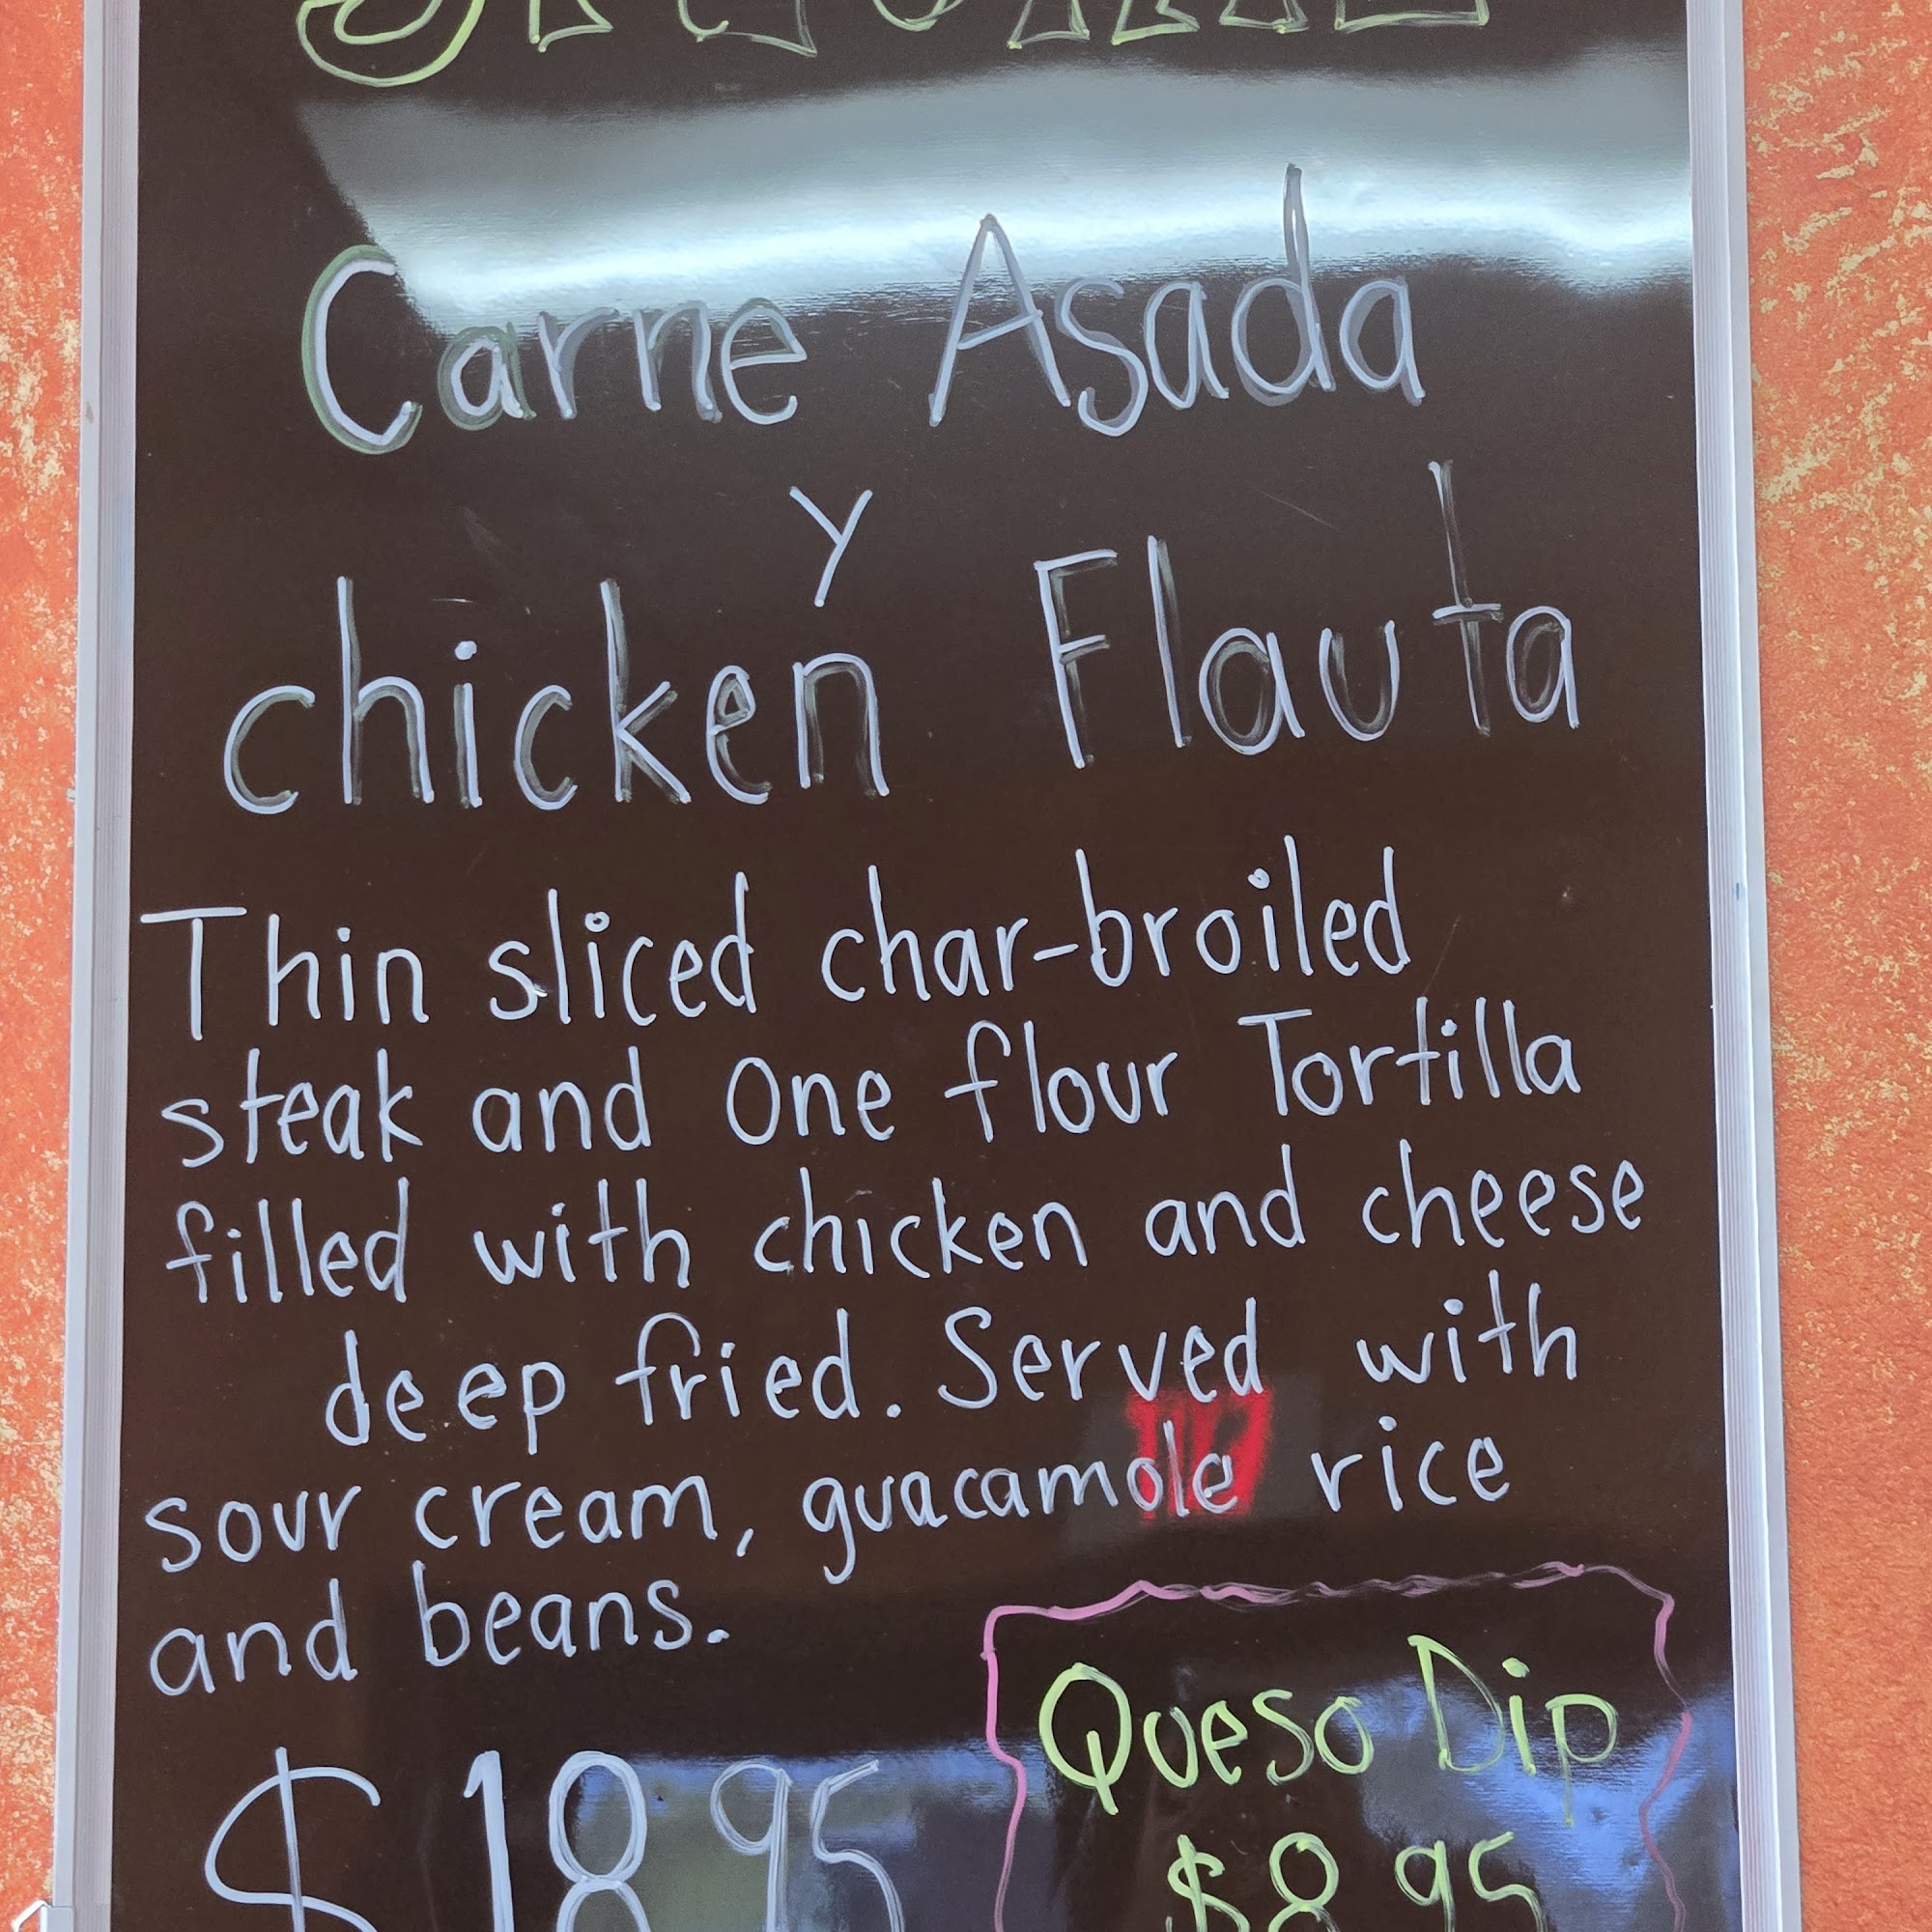 Carne Asada
y
chicken Flauta
Thin sliced char-broiled
steak and One flour Tortilla
filled with chicken and cheese
deep fried. Served with
sour cream, guacamole rice
and beans.
Queso Dip
$18.95
$8.95